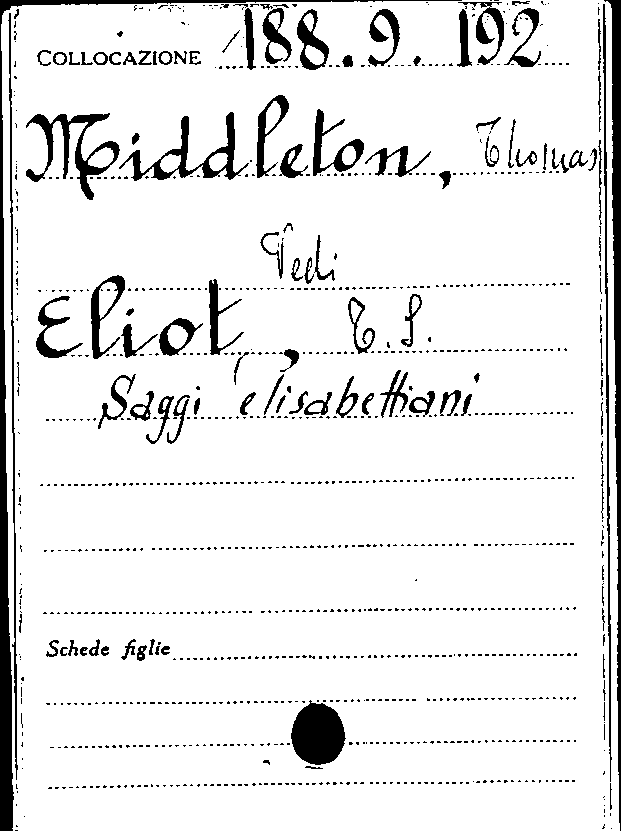 COLLOCAZIONE 188.9.192
Middleton, Thomas
Vedi
Eliot, T.S.
Saggi elisabettiani
Schede figlie